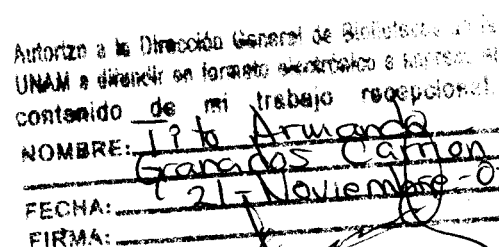 Autorizo a la Dirección General de Bibliotecas de la
UNAM a difundir en formato electrónico e impreso el
contenido de mi trabajo recepcional.
NOMBRE: Tito Armando
Granados Carrion
FECHA: 21-Noviembre-0
FIRMA: